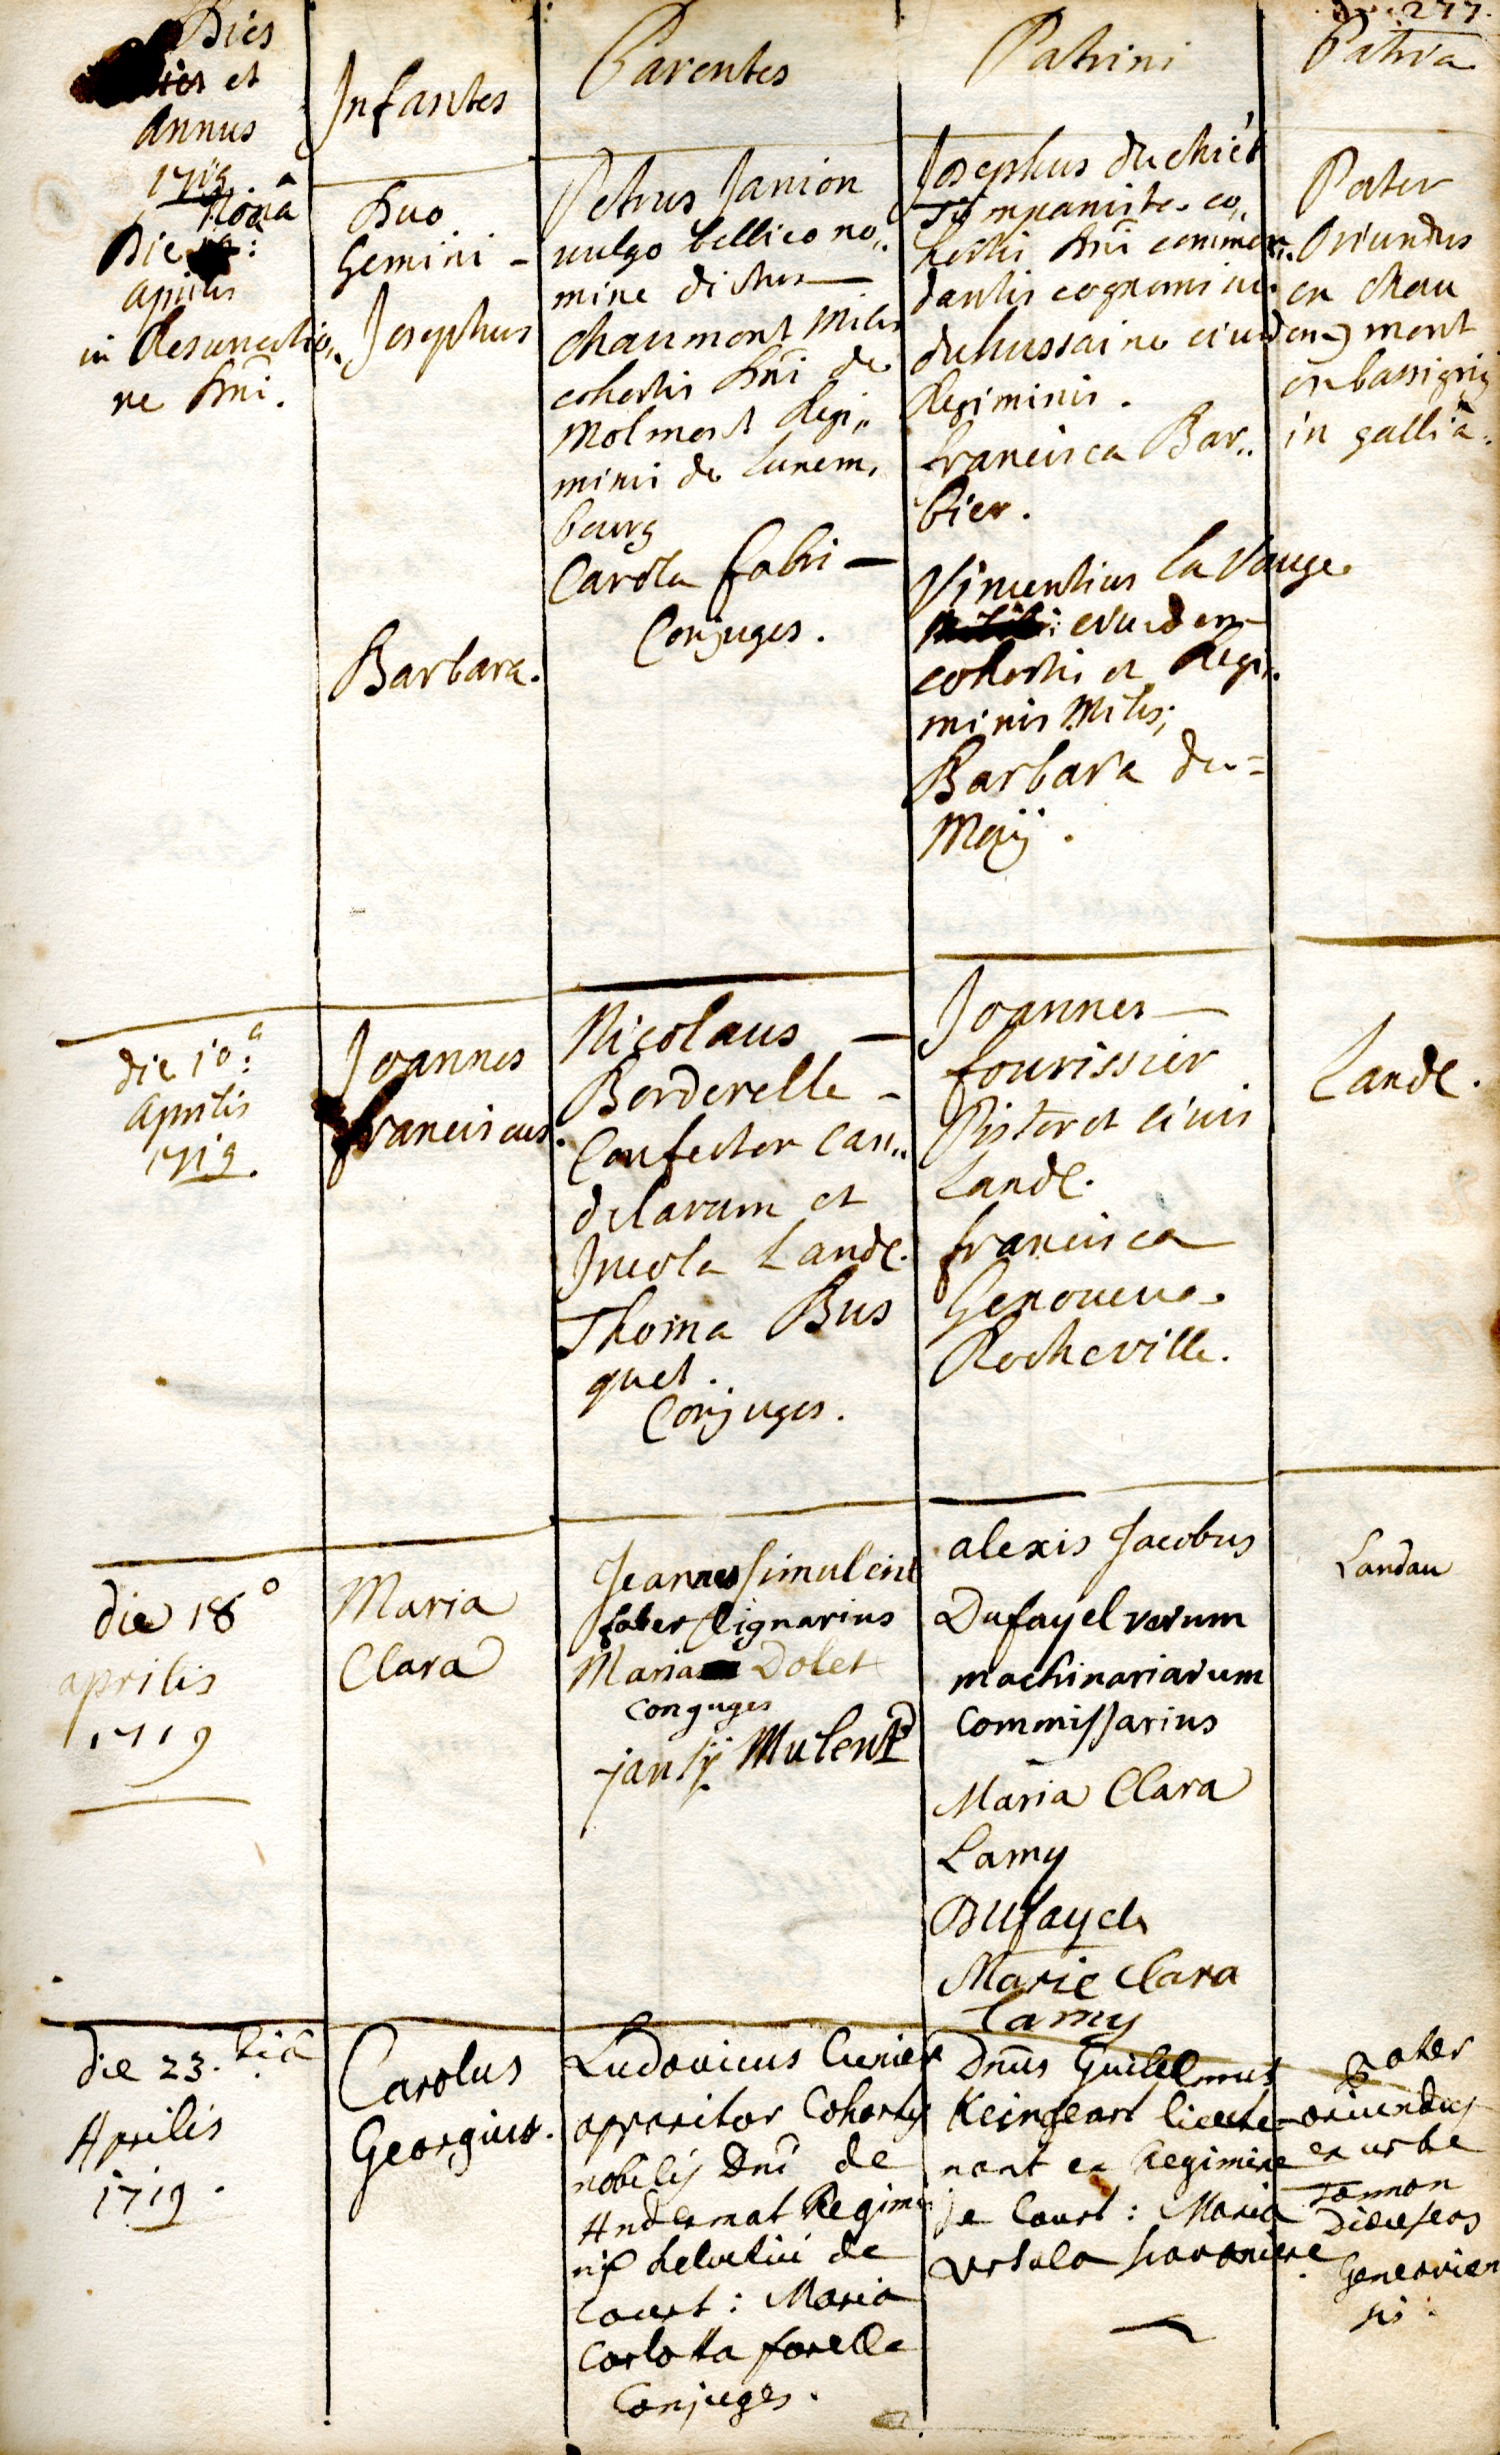 277.
Dies
et
Annus
1719
Infantes
Parentes
Patrini
Patria
Nonâ
Die
aprilis
in Resurrectio„
ne Dnī.
Duo
Gemini -
Josephus
Barbara.
Petrus Janion
vulgo bellico no„
mine dictus —
chaumont miles
cohortis Dnī de
Molmont Regi„
minis de Lunem,
bourg
Carola fabri —
Conjuges.
Josephus duchiét
Tympanista co„
hortis Dnī commen„
dantis cognomine
duhussaine eiusdem
Regiminis.
francisca Bar„
bier.
Vincentius la Vauge
eiusdem
cohortis et Regi„
minis Miles;
Barbara du=
Maÿ.
Pater
Oriundus
ex chau
mont
en bassigny
in galliâ.
die 10.a
aprilis
1719.
Joannes
franciscus.
Nicolaus —
Borderelle -
Confector can„
delarum et
Incola Land.
Thoma Bus
quet.
Conjuges.
Joannes —
fourissier
Pistor et civis
Land.
francisca
Genoueua
Rocheville.
Land.
die 18°
aprilis
1719
Maria
Clara
Jeannes simulent
faber lignarius
Maria Dolet
conjuges
Mulent
alexis Jacobus
Dufayel rerum
machinariarum
commissarius
Maria Clara
Lamy
Dufayel
Marie Clara
Lamy
Landau
die 23.tiâ
Aprilis
1719.
Carolus
Georgius.
Ludovicus Cunier
apparitor Cohortis
nobilis Dnī de
Andermat Regimi
nis helvetici de
Court: Maria
Carlotta forelle
Conjuges.
Dnūs Guilelmus
Keingeart lieute-
nant ex Regimine
de Court: Maria
Ursula
pater
oriundus
ex urbe
Tonnon
Dioeseos
Genevien
sis.